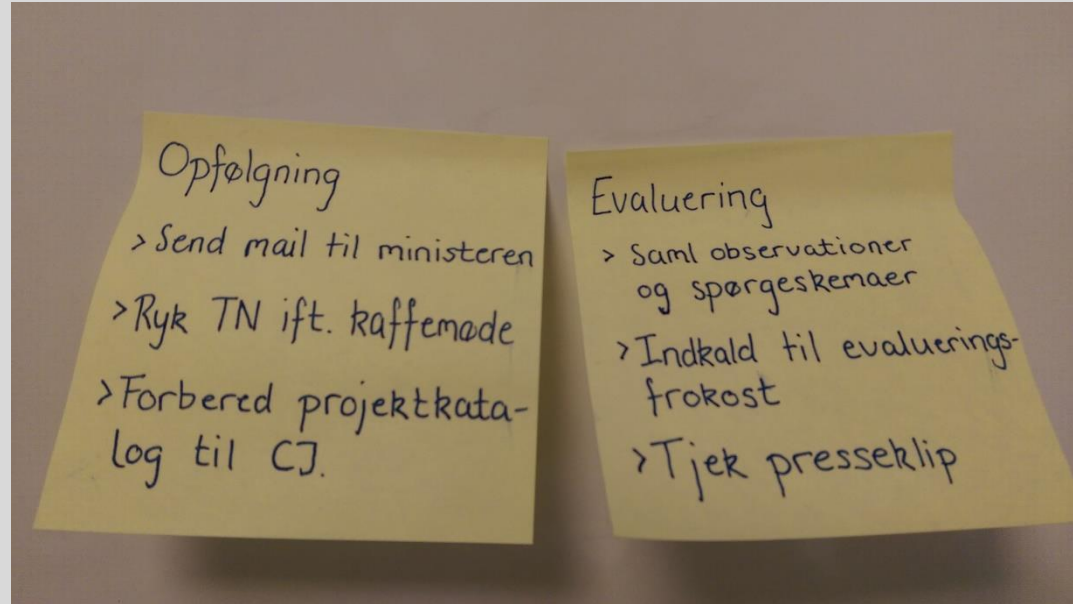 Opfølgning
> Send mail til ministeren
> Ryk TN ift. kaffemøde
> Forbered projektkata-
log til CJ.
Evaluering
> Saml observationer
og spørgeskemaer
> Indkald til evaluerings-
frokost
> Tjek presseklip